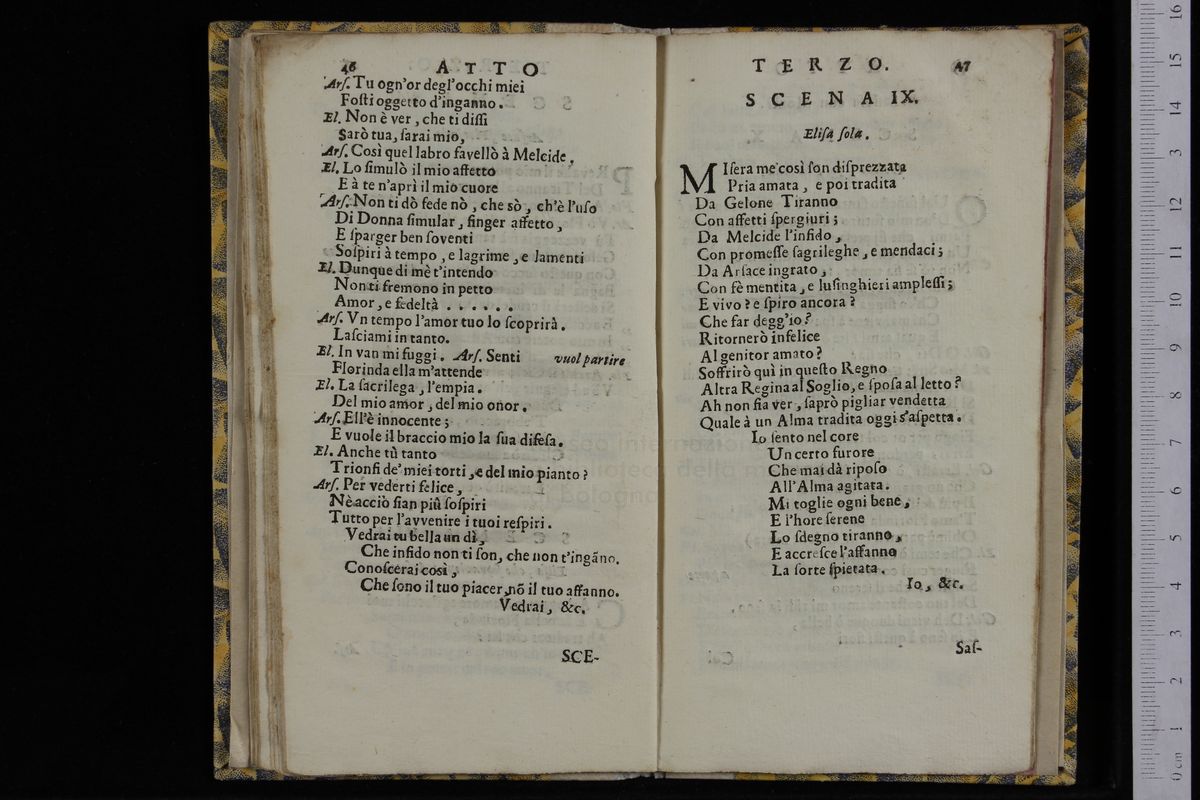 46 ATTO
Arſ. Tu ogn'or degl'occhi miei
Foſti oggetto d'inganno.
El. Non è ver, che ti diſſi
Sarò tua, ſarai mio,
Arſ. Così quel labro favellò à Melcide,
El. Lo ſimulò il mio affetto
E à te n'aprì il mio cuore
Arſ. Non ti dò fede nò, che sò, ch'è l'uſo
Di Donna ſimular, finger affetto,
E ſparger ben ſoventi
Soſpiri à tempo, e lagrime, e lamenti
El. Dunque di mè t'intendo
Non ti fremono in petto
Amor, e fedeltà . . . . . .
Arſ. Vn tempo l'amor tuo lo ſcoprirà.
Laſciami in tanto.
El. In van mi fuggi. Arſ. Senti vuol partire
Florinda ella m'attende
El. La ſacrilega, l'empia.
Del mio amor, del mio onor.
Arſ. Ell'è innocente;
E vuole il braccio mio la ſua difeſa.
El. Anche tù tanto
Trionfi de' miei torti, e del mio pianto?
Arſ. Per vederti felice,
Nè acciò ſian più ſoſpiri
Tutto per l'avvenire i tuoi reſpiri.
Vedrai tu bella un dì,
Che infido non ti ſon, che non t'ingãno.
Conoſcerai così,
Che ſono il tuo piacer, nõ il tuo affanno.
Vedrai, &c.
SCE-
TERZO. 47
SCENA IX.
Eliſa ſola.
MIſera me così ſon diſprezzata
Pria amata, e poi tradita
Da Gelone Tiranno
Con affetti ſpergiuri;
Da Melcide l'infido,
Con promeſſe ſagrileghe, e mendaci;
Da Arſace ingrato,
Con fè mentita, e luſinghieri ampleſſi;
E vivo? e ſpiro ancora?
Che far degg'io?
Ritornerò infelice
Al genitor amato?
Soffrirò quì in queſto Regno
Altra Regina al Soglio, e ſpoſa al letto?
Ah non ſia ver, ſaprò pigliar vendetta
Quale à un Alma tradita oggi s'aſpetta.
Io ſento nel core
Un certo furore
Che mai dà ripoſo
All'Alma agitata.
Mi toglie ogni bene,
E l'hore ſerene
Lo ſdegno tiranno,
E accreſce l'affanno
La ſorte ſpietata.
Io, &c.
Saſ-